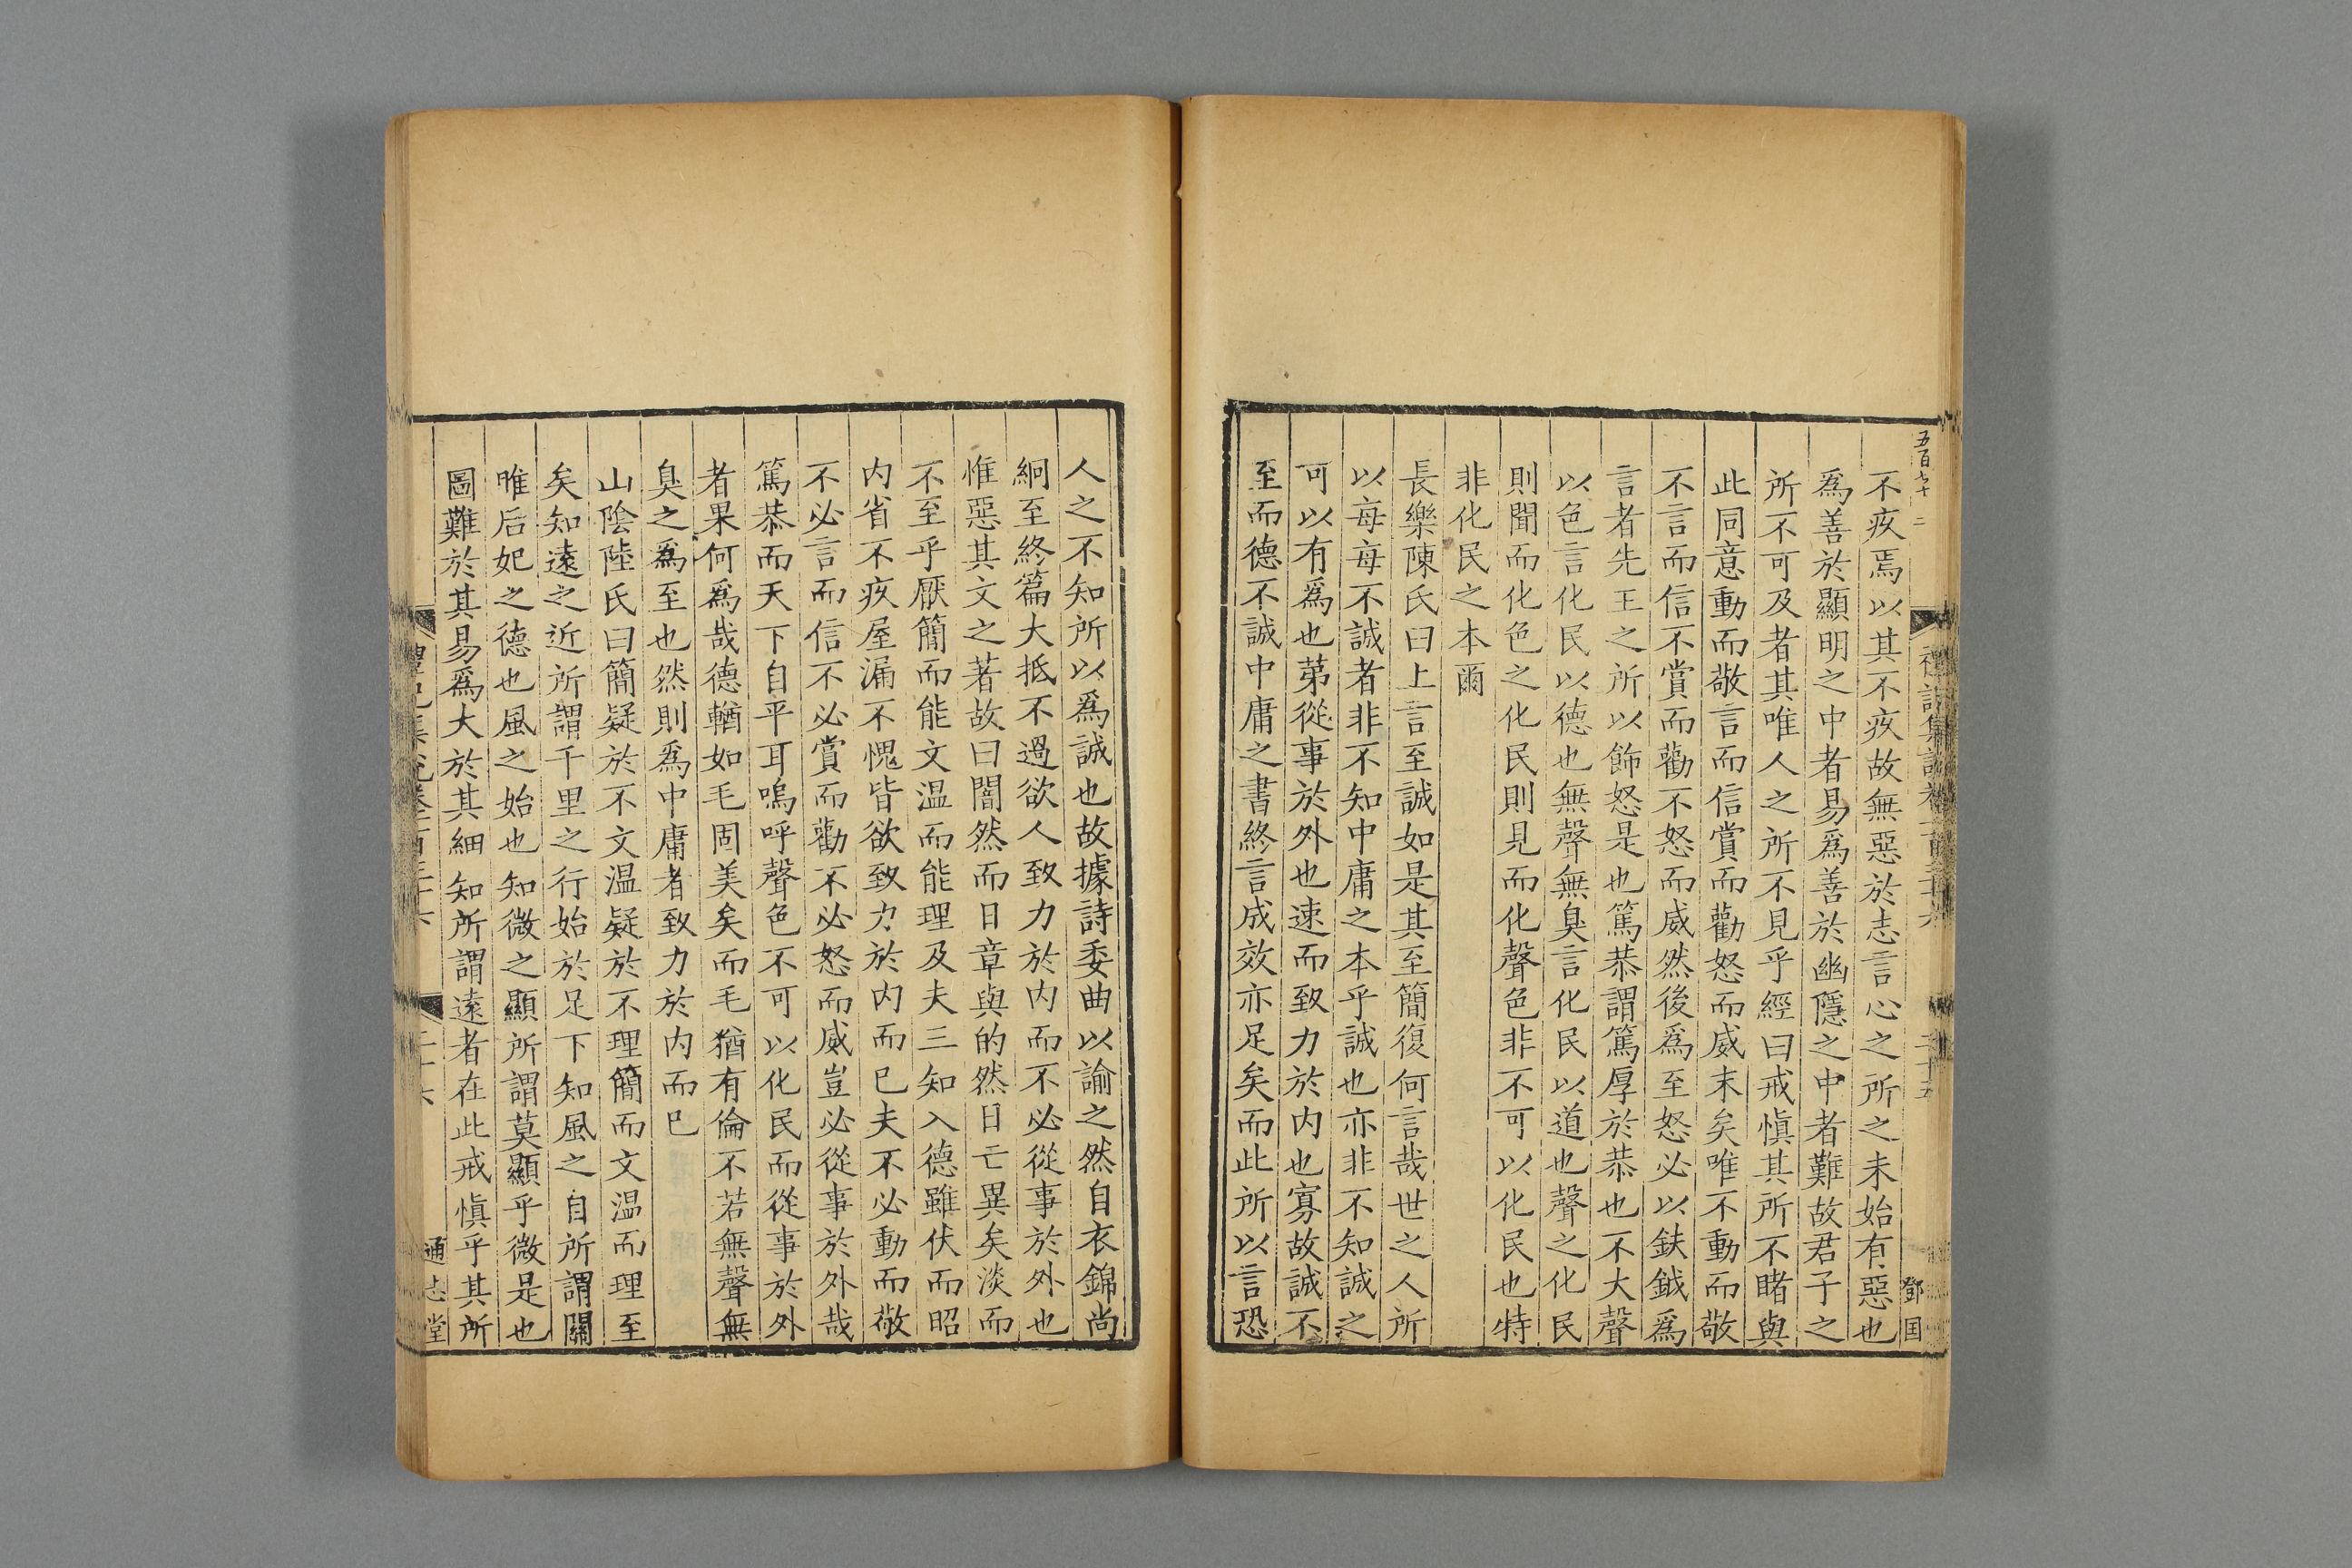 五百九十二
鄧囯
不疚焉以其不疚故無惡於志言心之所之未始有惡也
爲善於顯明之中者易爲善於幽隱之中者難故君子之
所不可及者其唯人之所不見乎經曰戒愼其所不睹與
此同意動而敬言而信賞而勸怒而威末矣唯不動而敬
不言而信不賞而勸不怒而威然後爲至怒必以鈇鉞爲
言者先王之所以飾怒是也篤恭謂篤厚於恭也不大聲
以色言化民以德也無聲無臭言化民以道也聲之化民
則聞而化色之化民則見而化聲色非不可以化民也特
非化民之本爾
長樂陳氏曰上言至誠如是其至簡復何言哉世之人所
以每每不誠者非不知中庸之本乎誠也亦非不知誠之
可以有爲也苐從事於外也速而致力於内也寡故誠不
至而德不誠中庸之書終言成效亦足矣而此所以言恐
人之不知所以爲誠也故據詩委曲以諭之然自衣錦尚
絅至終篇大抵不過欲人致力於内而不必從事於外也
惟惡其文之著故曰闇然而日章與的然日亡異矣淡而
不至乎厭簡而能文温而能理及夫三知入德雖伏而昭
内省不疚屋漏不愧皆欲致力於内而已夫不必動而敬
不必言而信不必賞而勸不必怒而威豈必從事於外哉
篤恭而天下自平耳嗚呼聲色不可以化民而從事於外
者果何爲哉德輶如毛固美矣而毛猶有倫不若無聲無
臭之爲至也然則爲中庸者致力於内而已
山陰陸氏曰簡疑於不文温疑於不理簡而文温而理至
矣知遠之近所謂千里之行始於足下知風之自所謂關
唯后妃之德也風之始也知微之顯所謂莫顯乎微是也
圖難於其易爲大於其細知所謂遠者在此戒愼乎其所
通志堂